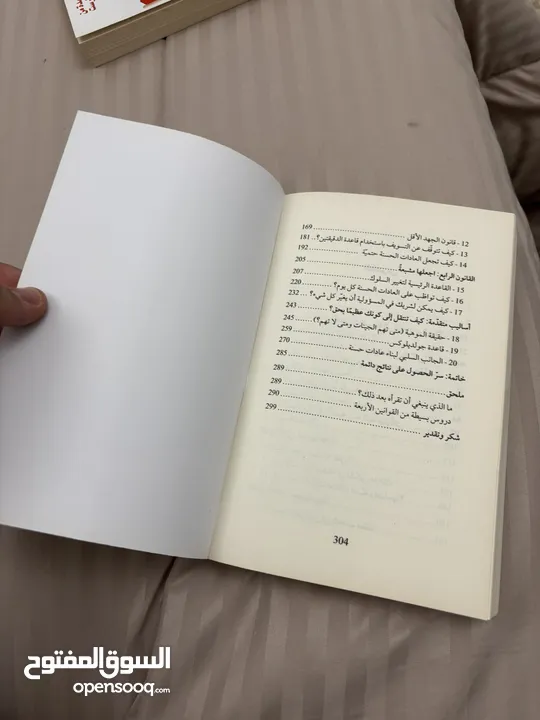 12 - قانون الجهد الأقل ........ 169
13 - كيف تتوقّف عن التسويف باستخدام قاعدة الدقيقتين؟ .. 181
14 - كيف تجعل العادات الحسنة حتميّة ........ 192
القانون الرابع: اجعلها مشبعةً ........ 205
15 - القاعدة الرئيسية لتغيير السلوك ........ 207
16 - كيف تواظب على العادات الحسنة كل يوم؟ ........ 220
17 - كيف يمكن لشريك في المسؤولية أن يغيّر كل شيء؟ ... 232
أساليب متقدّمة: كيف تنتقل إلى كونك عظيمًا بحق؟ ........ 243
18 - حقيقة الموهبة (متى تهم الجينات ومتى لا تهم؟) ........ 245
19 - قاعدة جولديلوكس ........ 259
20 - الجانب السلبي لبناء عادات حسنة ........ 270
خاتمة: سرّ الحصول على نتائج دائمة ........ 285
ملحق ........ 289
ما الذي ينبغي أن تقرأه بعد ذلك؟ ........ 289
دروس بسيطة من القوانين الأربعة ........ 290
شكر وتقدير ........ 299
304
السوق المفتوح
opensooq.com